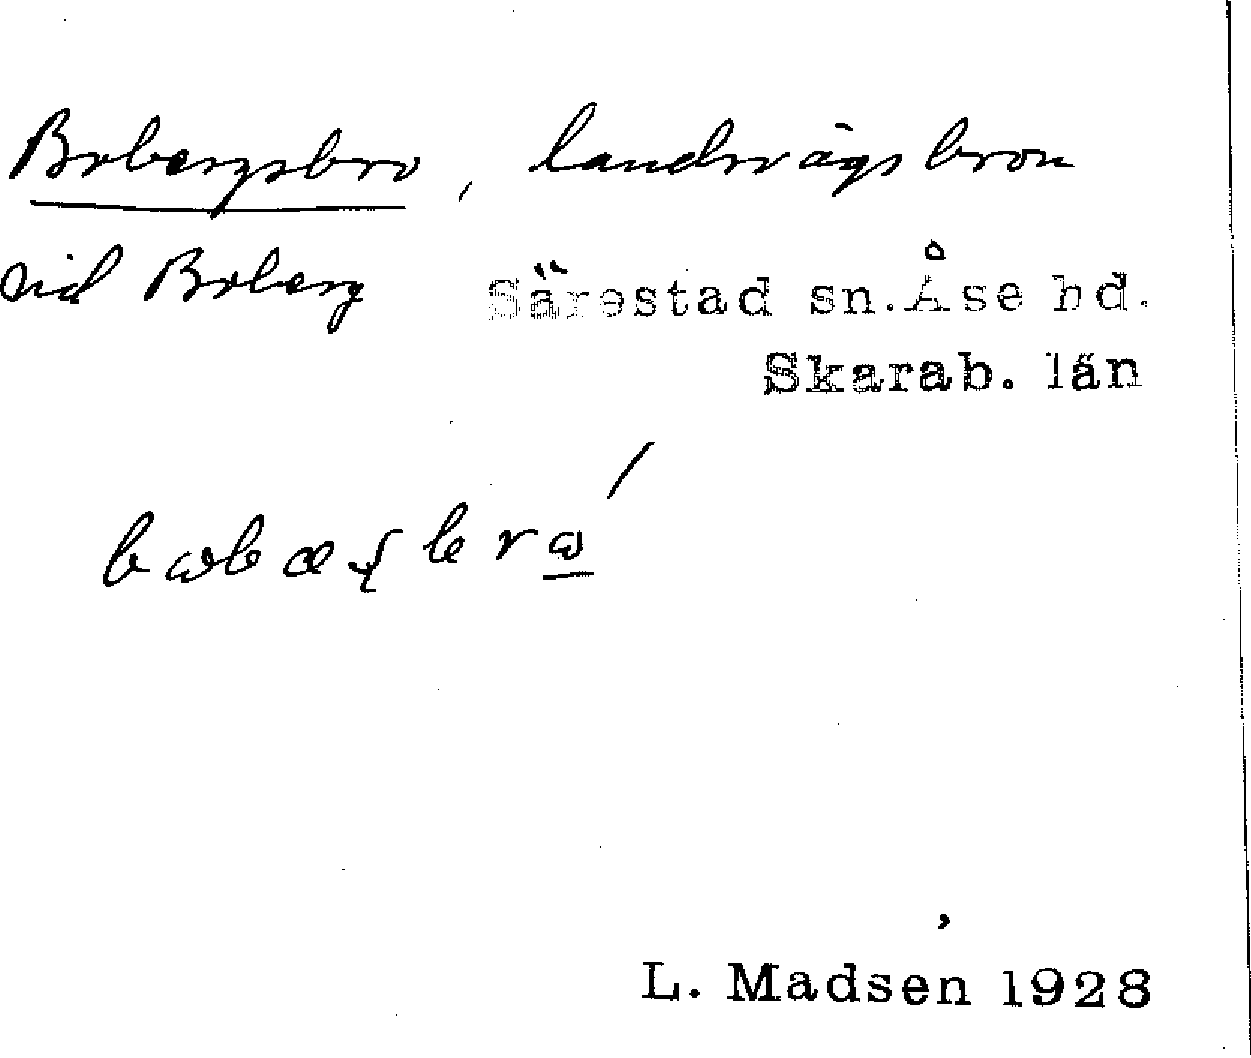 Bobergsbro, landsvägsbron
vid Boberg Särestad sn. Åse hd.
Skarab. län
L. Madsen 1928